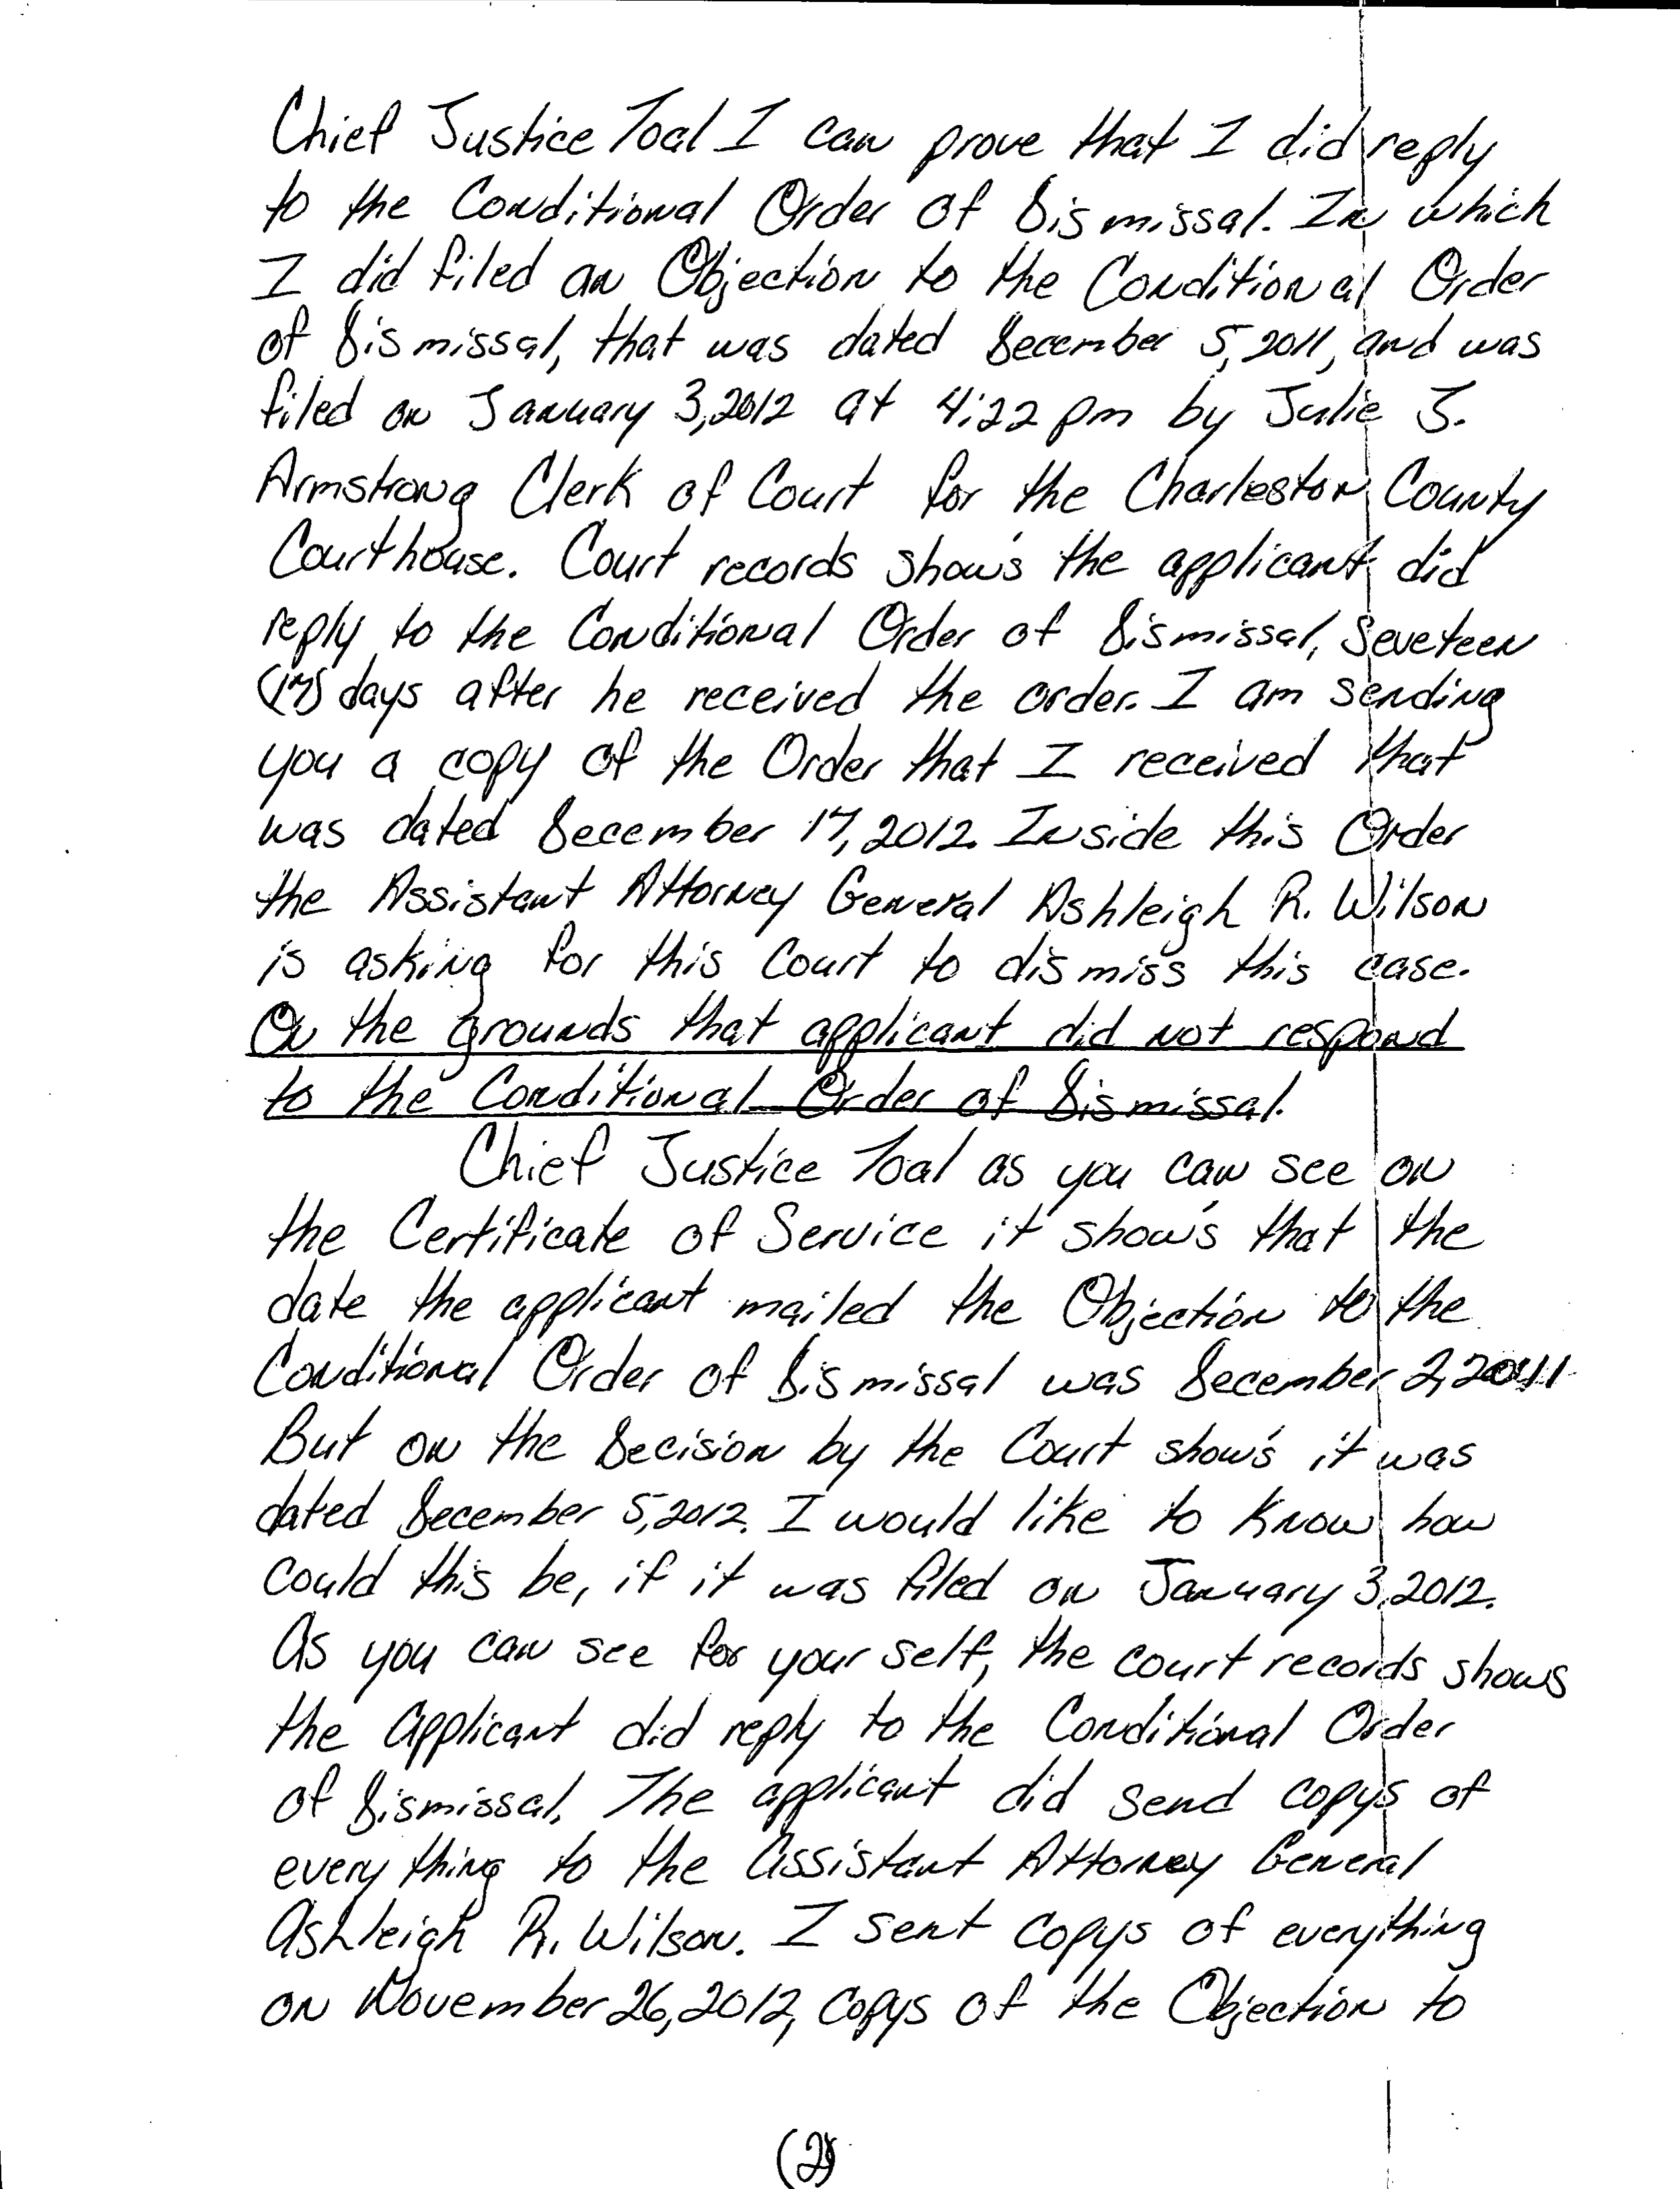 Chief Justice Toal I can prove that I did reply
to the Conditional Order of Dismissal. In which
I did filed an Objection to the Conditional Order
of Dismissal, that was dated December 5, 2011, and was
filed on January 3, 2012 at 4:22 pm by Julie J.
Armstrong Clerk of Court for the Charleston County
Courthouse. Court records show's the applicant did
reply to the Conditional Order of Dismissal, Seveteen
(17) days after he received the order. I am sending
you a copy of the Order that I received that
was dated December 17, 2012. Inside this Order
the Assistant Attorney General Ashleigh R. Wilson
is asking for this Court to dismiss this case.
On the grounds that applicant did not respond
to the Conditional Order of Dismissal.
Chief Justice Toal as you can see on
the Certificate of Service it show's that the
date the applicant mailed the Objection to the
Conditional Order of Dismissal was December 2, 2011
But on the Decision by the Court show's it was
dated December 5, 2012. I would like to know how
could this be, if it was filed on January 3, 2012.
As you can see for your self, the court records shows
the Applicant did reply to the Conditional Order
of Dismissal. The applicant did send copys of
every thing to the Assistant Attorney General
Ashleigh R. Wilson. I sent copys of everything
on November 26, 2012, copys of the Objection to
(2)